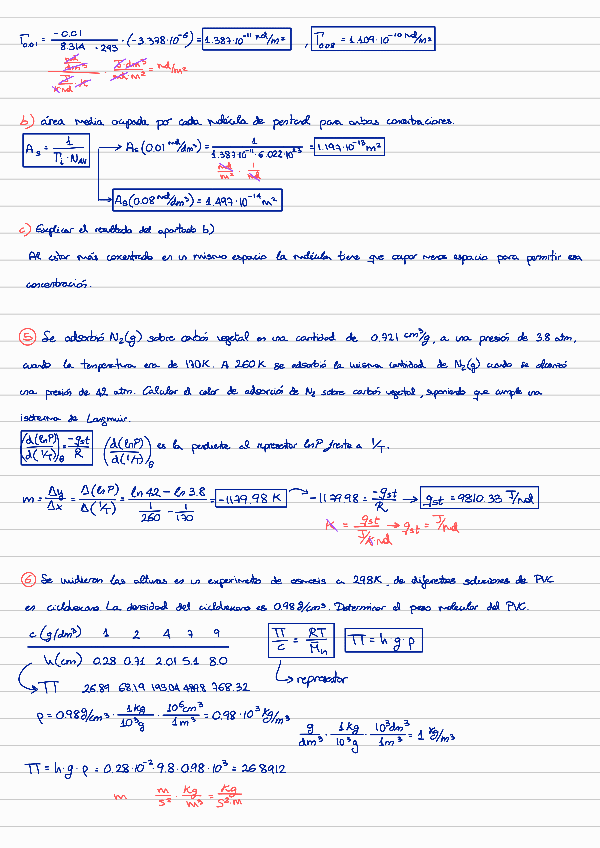 Γ0.01 = -0.01 / 8.314 · 293 · (-3.378·10⁻⁶) = 1.387·10⁻¹¹ mol/m² , Γ0.08 = 1.109·10⁻¹⁰ mol/m²
mol/dm³ / J/K mol · K · J·dm³/mol·m² = mol/m²
b) área media ocupada por cada molécula de pentanol para ambas concentraciones.
As = 1 / Γi · NAV → As (0.01 mol/dm³) = 1 / 1.387·10⁻¹¹ · 6.022·10²³ = 1.197·10⁻¹³ m²
mol/m² · 1/mol
As (0.08 mol/dm³) = 1.497·10⁻¹⁴ m²
c) Explicar el resultado del apartado b)
Al estar más concentrado en un mismo espacio la molécula tiene que ocupar menos espacio para permitir esa
concentración.
⑤ Se adsorbió N₂(g) sobre carbón vegetal en una cantidad de 0.921 cm³/g, a una presión de 3.8 atm,
cuando la temperatura era de 170K. A 260K se adsorbió la misma cantidad de N₂(g) cuando se alcanzó
una presión de 42 atm. Calcular el calor de adsorción de N₂ sobre carbón vegetal, suponiendo que cumple una
isoterma de Langmuir.
(d(lnP)/d(1/T))θ = -qst/R (d(lnP)/d(1/T))θ es la pendiente al representar lnP frente a 1/T.
m = Δy/Δx = Δ(lnP)/Δ(1/T) = ln 42 - ln 3.8 / 1/260 - 1/170 = -1179.98 K → -1179.98 = -qst/R → qst = 9810.33 J/mol
K = qst / J/K·mol → qst = J/mol
⑥ Se midieron las alturas en un experimento de osmosis a 298K, de diferentes soluciones de PVC
en ciclohexano. La densidad del ciclohexano es 0.98 g/cm³. Determinar el peso molecular del PVC.
c (g/dm³) 1 2 4 7 9 Π/c = RT/Mn Π = h g ρ
h (cm) 0.28 0.71 2.01 5.1 8.0
→ representar
→ Π 26.89 68.19 193.04 489.8 768.32
ρ = 0.98 g/cm³ · 1kg/10³g · 10⁶cm³/1m³ = 0.98·10³ kg/m³
g/dm³ · 1kg/10³g · 10³dm³/1m³ = 1 kg/m³
Π = h·g·ρ = 0.28·10⁻²·9.8·0.98·10³ = 26.8912
m m/s² · kg/m³ = kg/s²·m